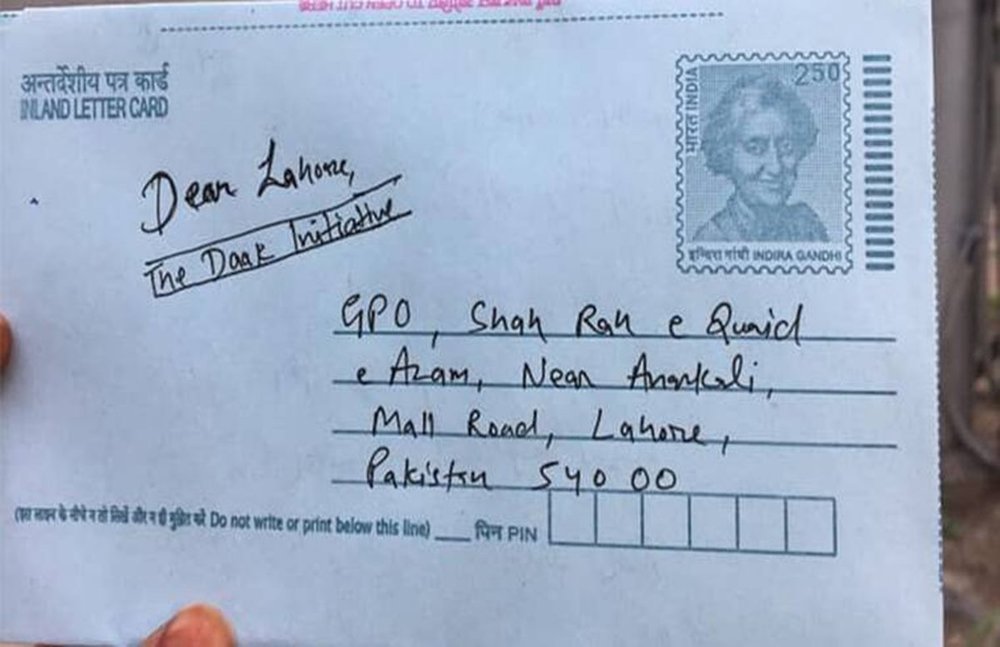 अन्तर्देशीय पत्र कार्ड
INLAND LETTER CARD
250
भारत INDIA
इन्दिरा गांधी INDIRA GANDHI
Dear Lahore,
The Daak Initiative
GPO, Shah Rah e Quaid
e Azam, Near Anarkali,
Mall Road, Lahore,
Pakistan 54000
(इस लाइन के नीचे न तो लिखें और न ही मुद्रित करें Do not write or print below this line) पिन PIN